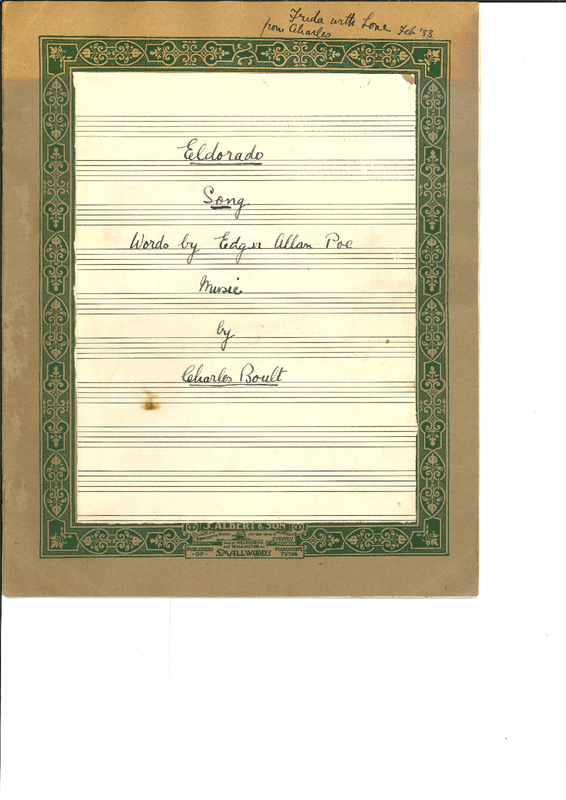 Frida with Love Feb '33
from Charles
Eldorado
Song
Words by Edgar Allan Poe
Music
by
Charles Boult
J. ALBERT & SON
SYDNEY
MELBOURNE
AND WELLINGTON
PUBLISHERS
-OF-
SMALLWOOD'S
PIANOFORTE
TUTOR